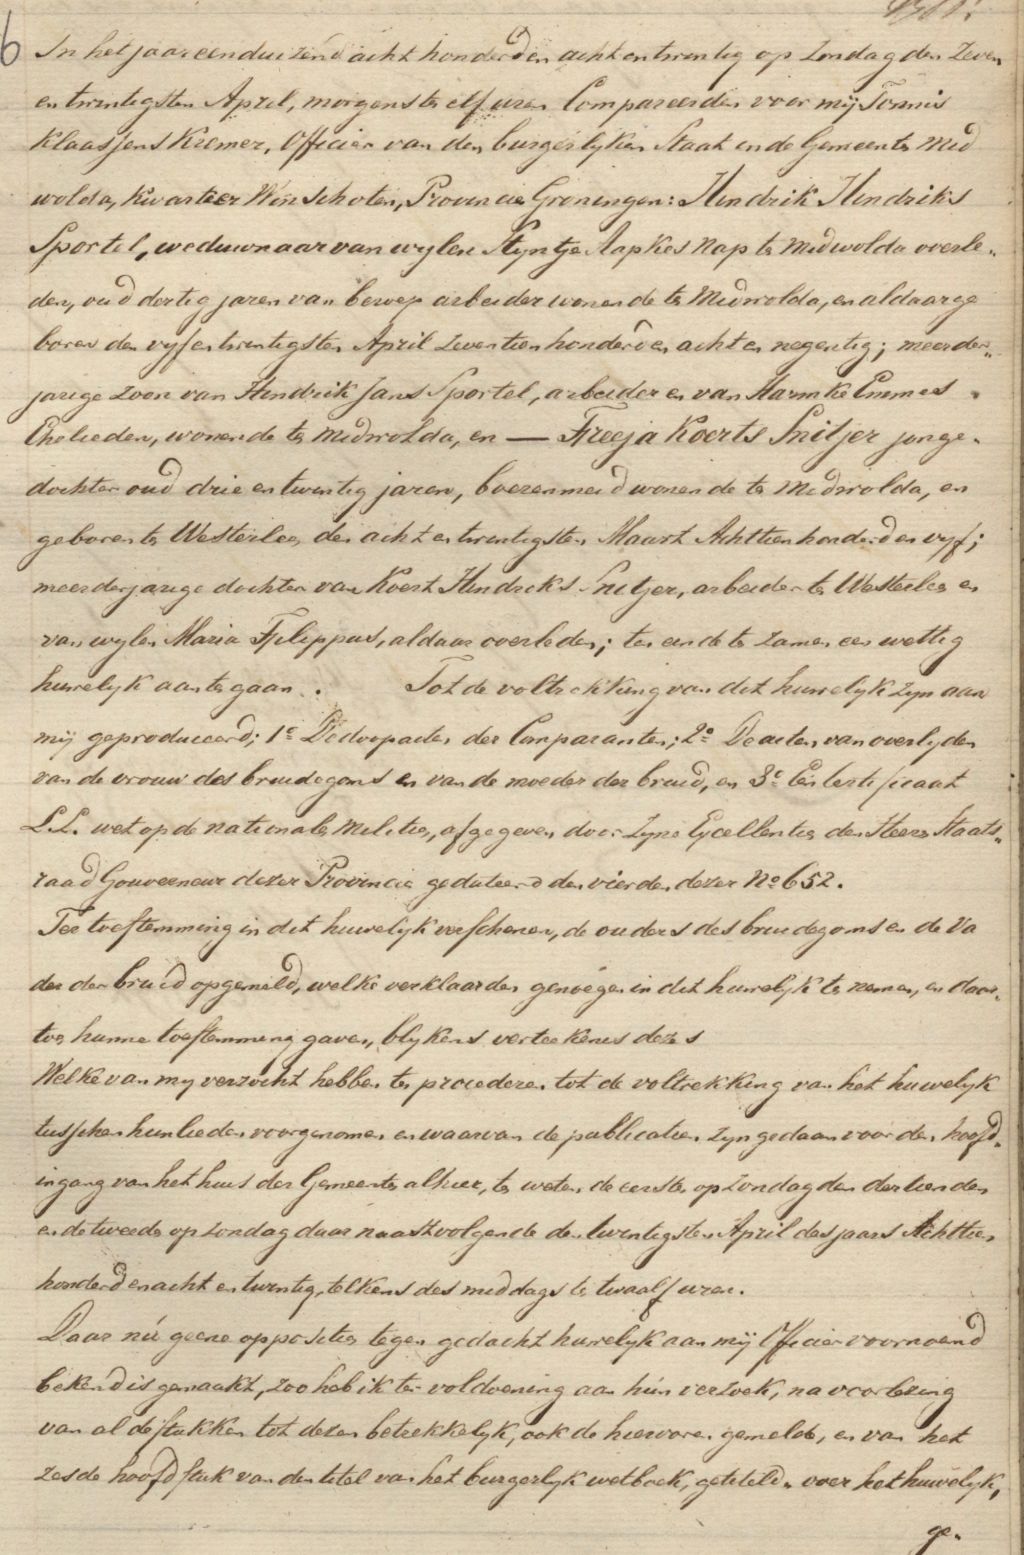 6
In het jaar eenduizend acht honderd en acht en twintig op Zondag den Zeven
en twintigsten April, morgens te elf uren Compareerden voor mij Tonnis
Klaassens Kremer, Officier van den burgerlyken Staat in de Gemeente Mid
wolda, Kwartier Winschoten, Provincie Groningen: Hindrik Hindriks
Sportel, weduwnaar van wylen Styntje Aapkes Nap te Midwolda overle„
den, oud dertig jaren van beroep arbeider wonende te Midwolda, en aldaar ge
boren den vyf en twintigsten April Zeventien honderd en acht en negentig; meerder„
jarige zoon van Hindrik Jans Sportel, arbeider en van Harmke Emmes
Ehelieden, wonende te Midwolda, en — Freeja Koerts Snitjer jonge„
dochter oud drie en twintig jaren, boerenmeid wonende te Midwolda, en
geboren te Westerlee den acht en twintigsten Maart Achttien honderd en vyf;
meerderjarige dochter van Koert Hindriks Snitjer, arbeider te Westerlee en
van wylen Maria Filippus, aldaar overleden; ten einde te zamen een wettig
huwelyk aan te gaan. Tot de voltrekking van dit huwelyk zyn aan
mij geproduceerd; 1e De doopacten der Comparanten; 2o De acten van overlyden
van de vrouw des bruidegoms en van de moeder der bruid, en 3e Een certificaat
L.L. wet op de nationale Militie, afgegeven door Zyne Excellentie den Heere Staats„
raad Gouverneur dezer Provincie gedateerd den vierden dezer No 652.
Ter toestemming in dit huwelyk verschenen, de ouders des bruidegoms en de Va
der der bruid opgemeld, welke verklaarden genoegen in dit huwelyk te nemen, en daar„
toe hunne toestemming gaven, blykens verteekenes dezes
Welke van my verzocht hebben te procederen tot de voltrekking van het huwelyk
tusschen hunlieden voorgenomen en waarvan de publicatien zyn gedaan voor den hoofd„
ingang van het huis der Gemeente alhier, te weten, de eerste op Zondag den dertienden
en de tweede op zondag daar naastvolgende den twintigsten April des jaars Achttien
honderd en acht en twintig, telkens des middags te twaalf uren.
Daar nú geene oppositie tegen gedacht huwelyk aan mij Officier voornoemd
bekend is gemaakt, zoo heb ik ter voldoening aan hún verzoek, na voorlezing
van al de stukken tot dezen betrekkelyk, ook de hiervoren gemelde, en van het
zesde hoofdstuk van den titel van het burgerlyk wetboek, getiteld„ over het huwelyk,
ge„